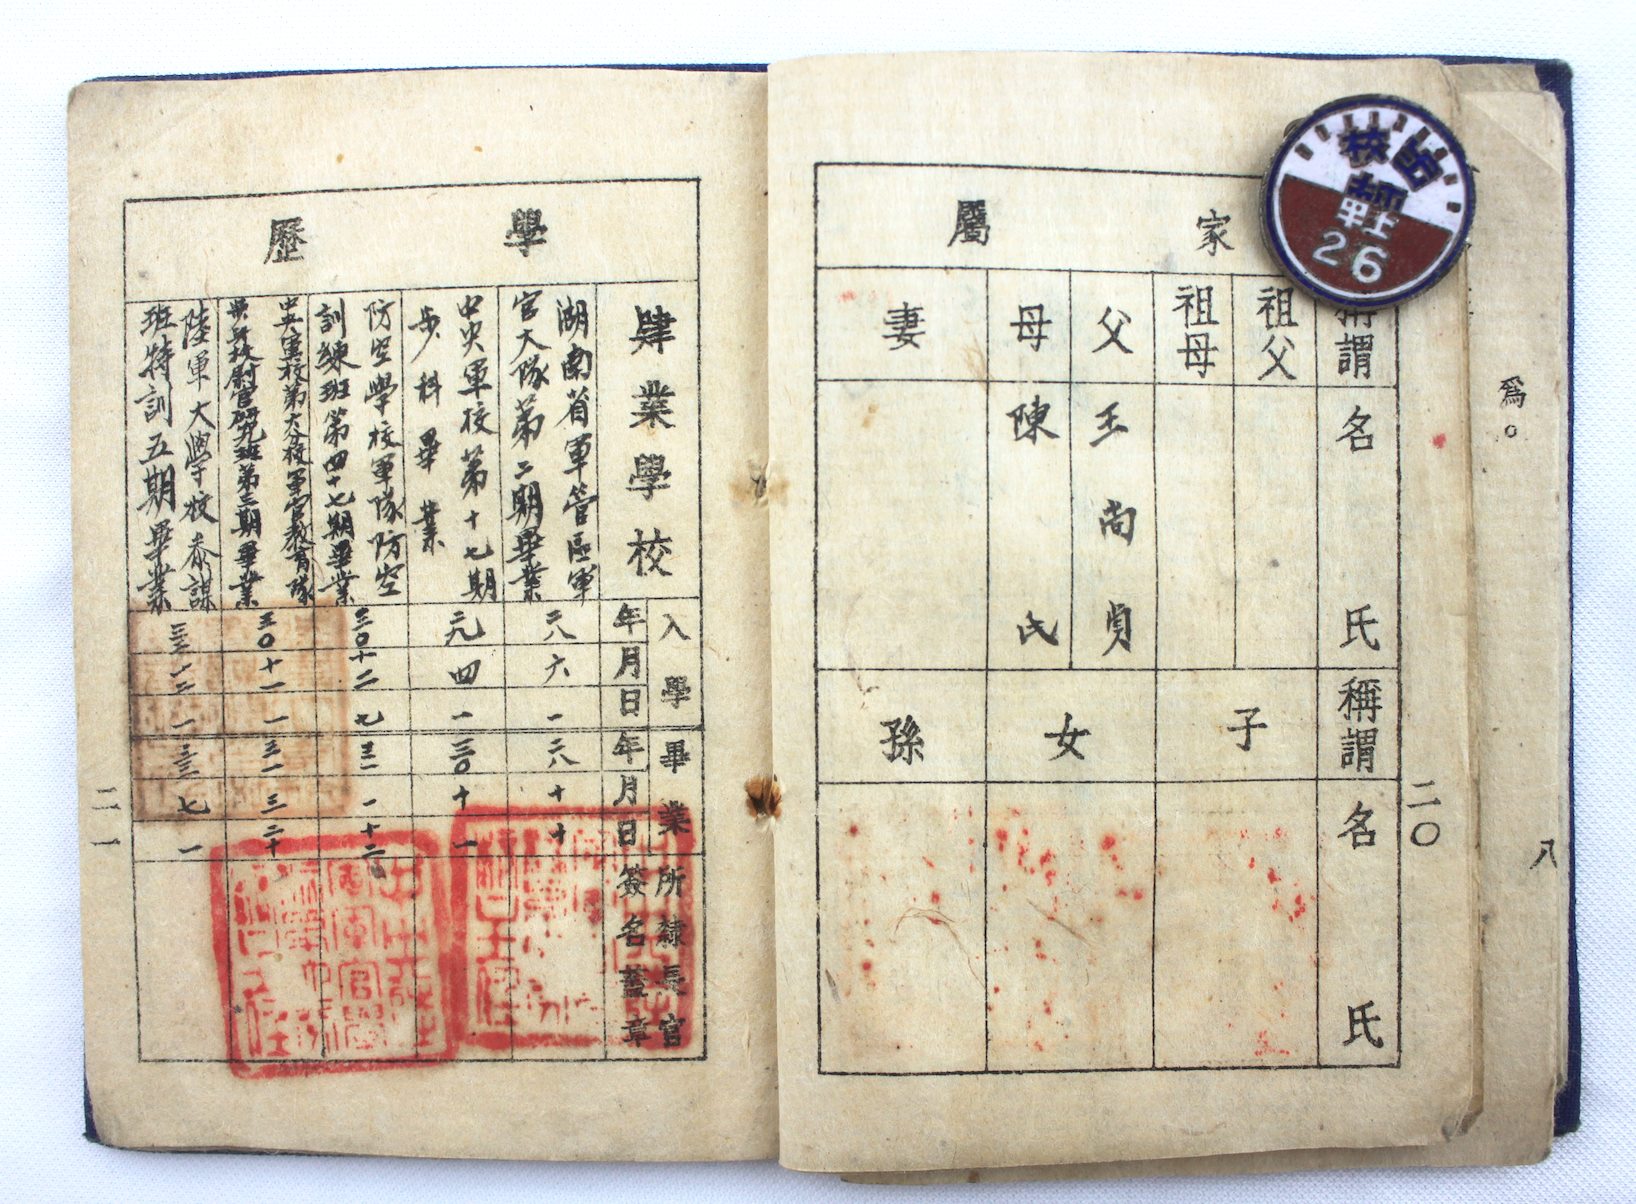 爲。
八
家屬
稱謂
祖父
祖母
父
母
妻
名氏
王尚貞
陳氏
稱謂
子
女
孫
名氏
二〇
26
學歷
肄業學校
湖南省軍管區軍
官大隊第二期畢業
中央軍校第十七期
步科畢業
防空學校軍隊防空
訓練班第四十七期畢業
央軍校第六分校軍官教育隊
校尉官研究班第三期畢業
陸軍大學校參謀
班特訓五期畢業
入學
年月日
二八 六 一
二九 四 一
三〇 十二 七
三〇 十一 一
一二 一
畢業
年月日
二八 十 十
三〇 十 一
三一 一 十二
三一 三 二十
三三 七 一
所隸長官
簽名蓋章
二一